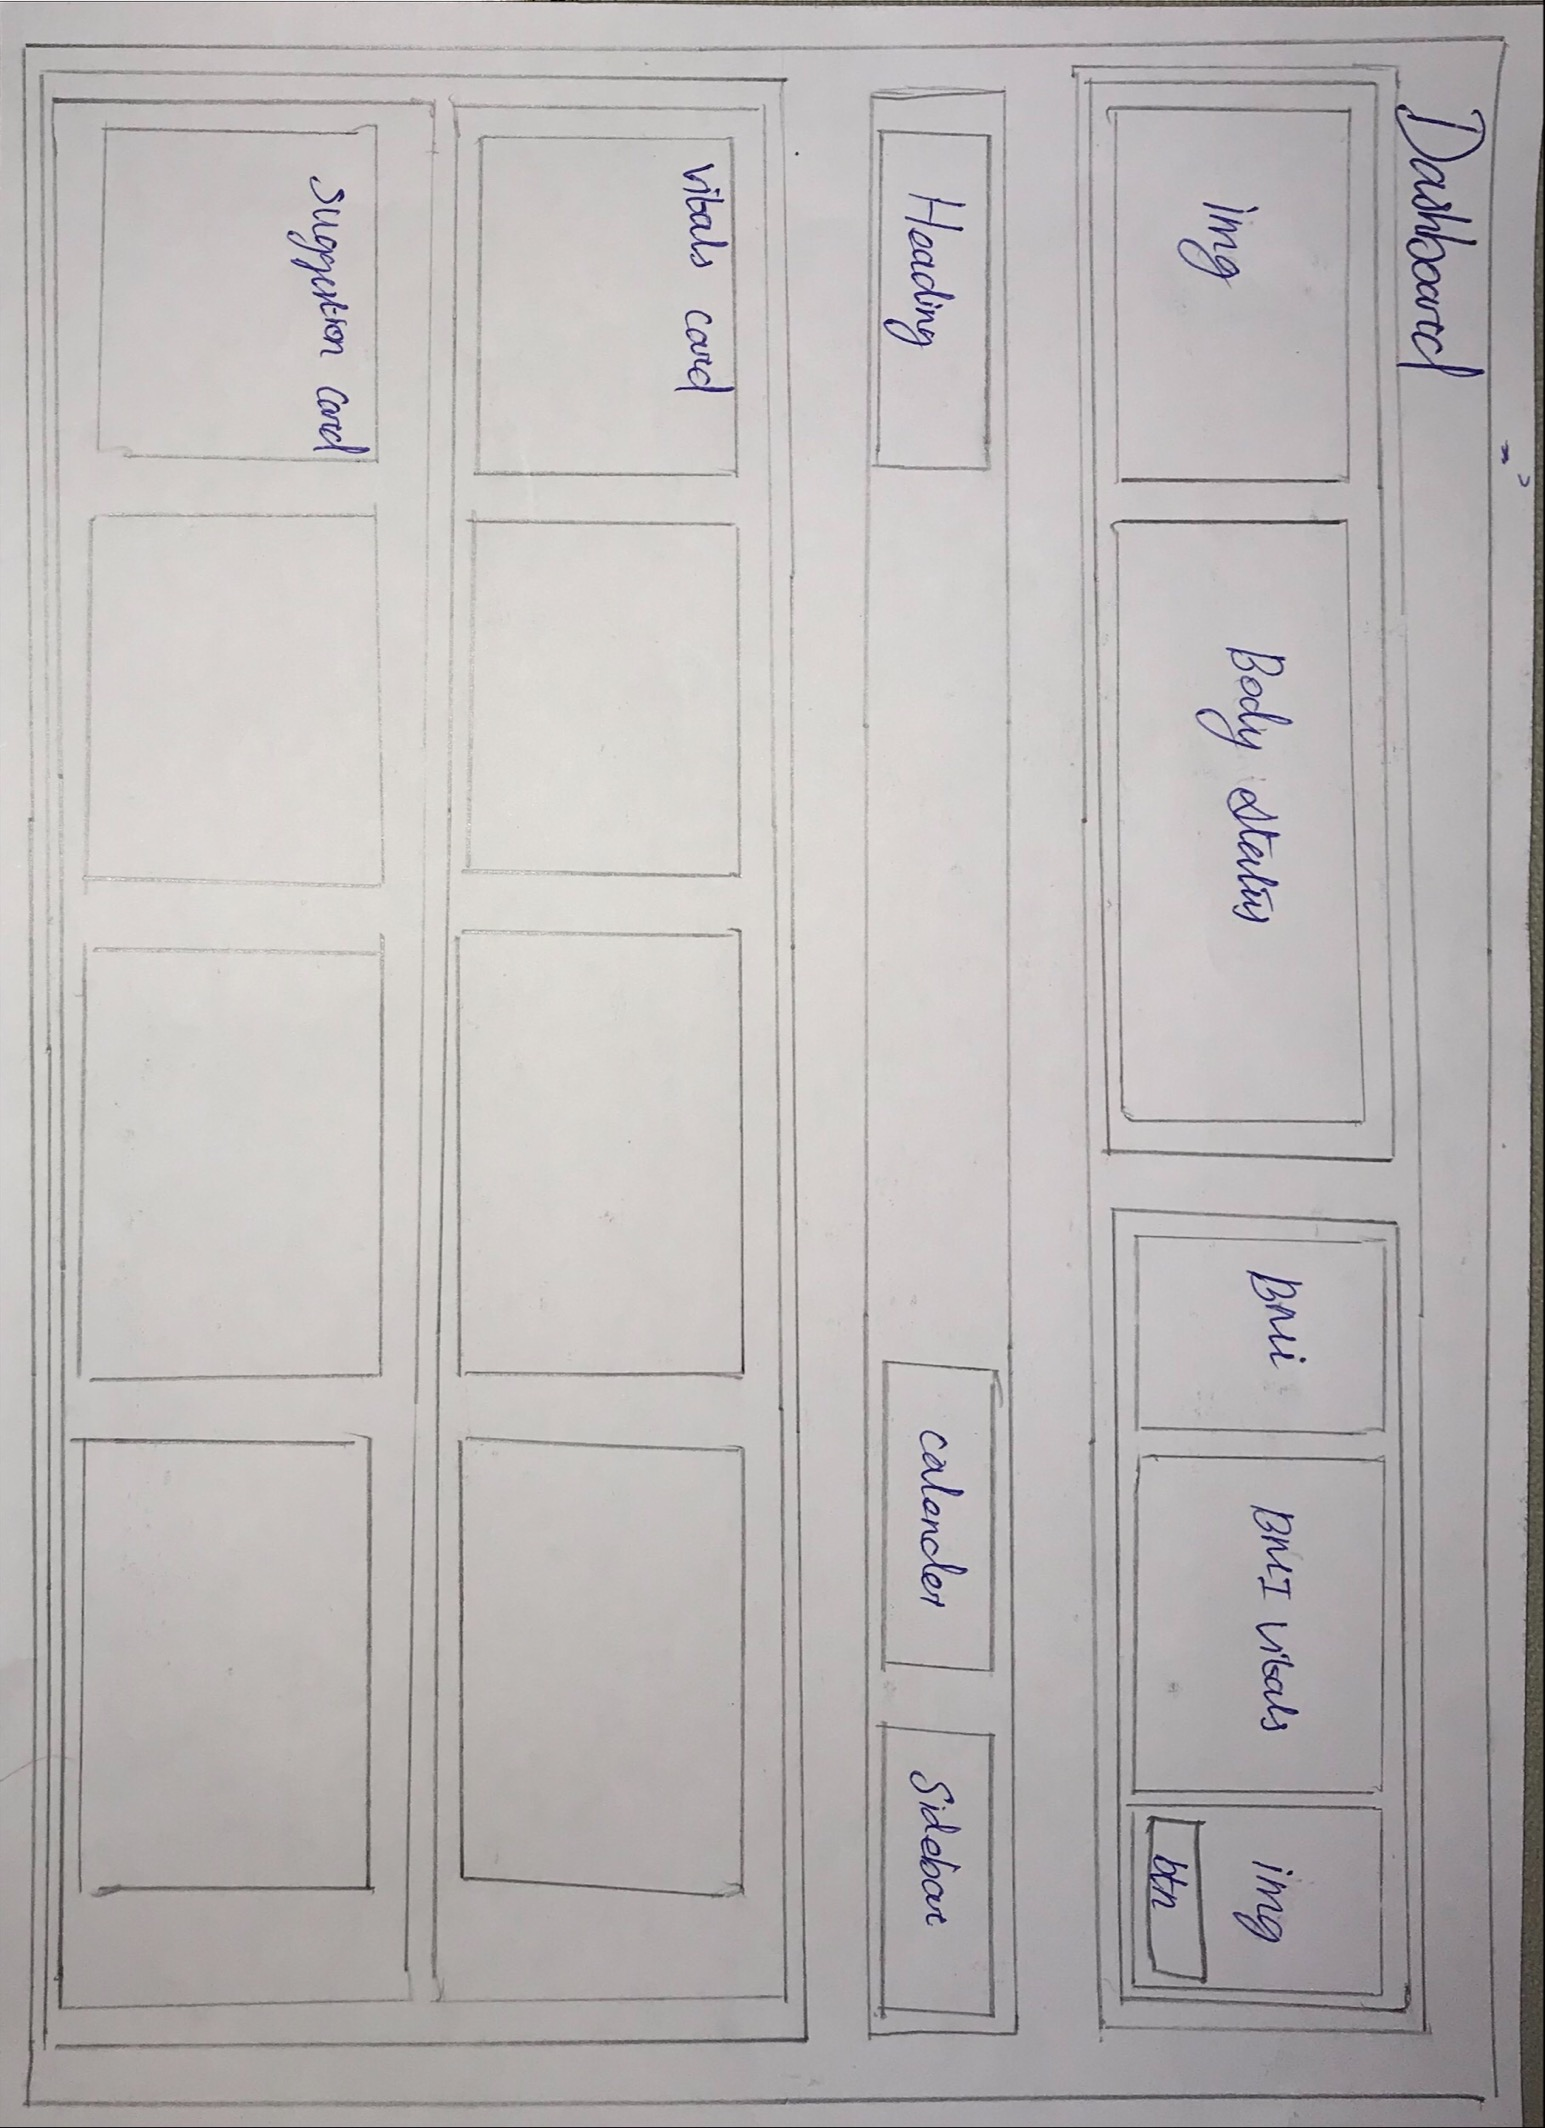 Dashboard
img
Body status
BMi
BMI vitals
img
btn
Heading
calander
Sidebar
vitals card
suggestion card